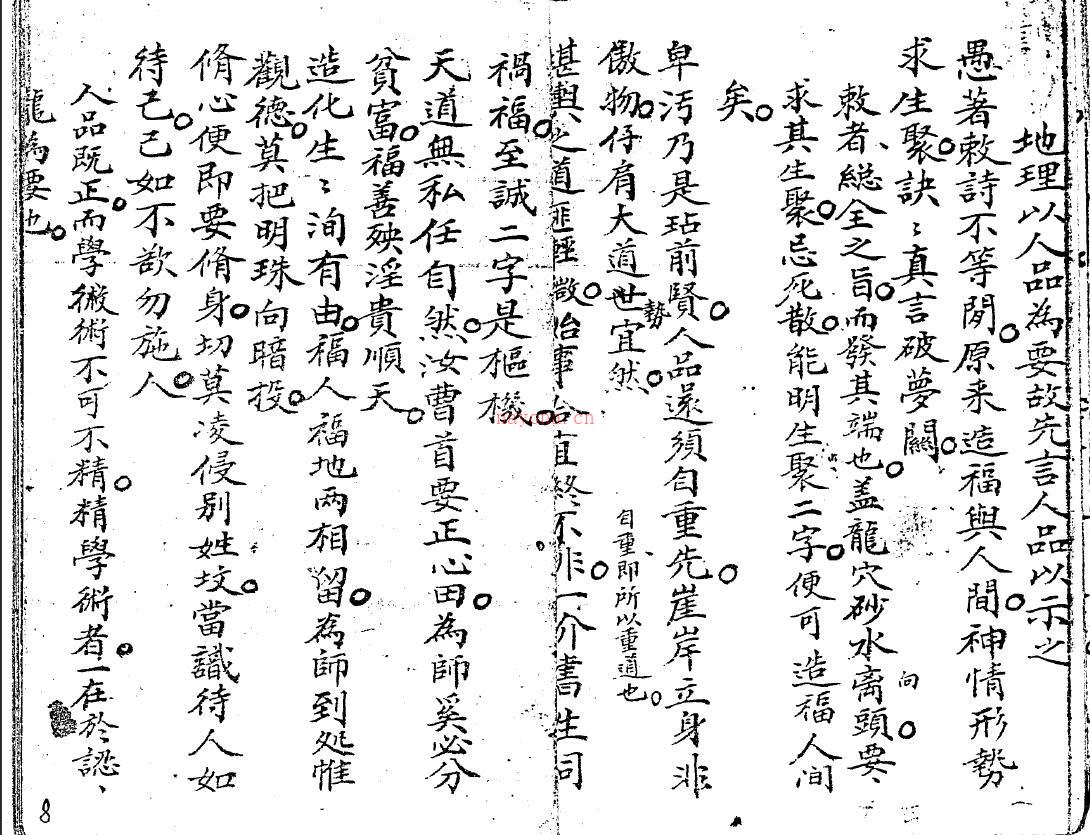 地理以人品為要故先言人品以示之
愚著數詩不等閒原来造福與人間神情形勢
求生聚訣〻真言破夢關
敎者總全之旨而發其端也盖龍穴砂水向离頭要〻
求其生聚忌死散能明生聚二字便可造福人间
矣
卑污乃是玷前賢人品還須自重先崖岸立身非
傲物仔肩大道勢世宜然自重即所以重道也
堪輿之道匪輕 事 直終不非一介書生司
禍福至誠二字是樞機
天道無私任自然汝曹首要正心田為師奚必分
貧富福善殃淫貴順天
造化生〻洵有由福人福地两相留為師到処惟
觀德莫把明珠向暗投
脩心便即要脩身切莫凌侵别姓坟當識待人如
待己己如不欲勿施人
人品既正而學術不可不精精學術者一在於認〻
龍為要也
8